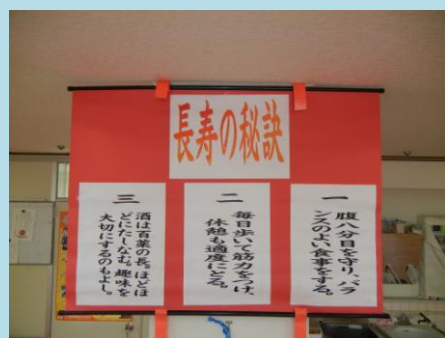 長寿の秘訣
一
腹八分目を守り、バラ
ンスのよい食事をする。
二
毎日歩いて筋力をつけ、
休憩も適度にとる。
三
酒は百薬の長。ほどほ
どにたしなむ。趣味を
大切にするのもよし。